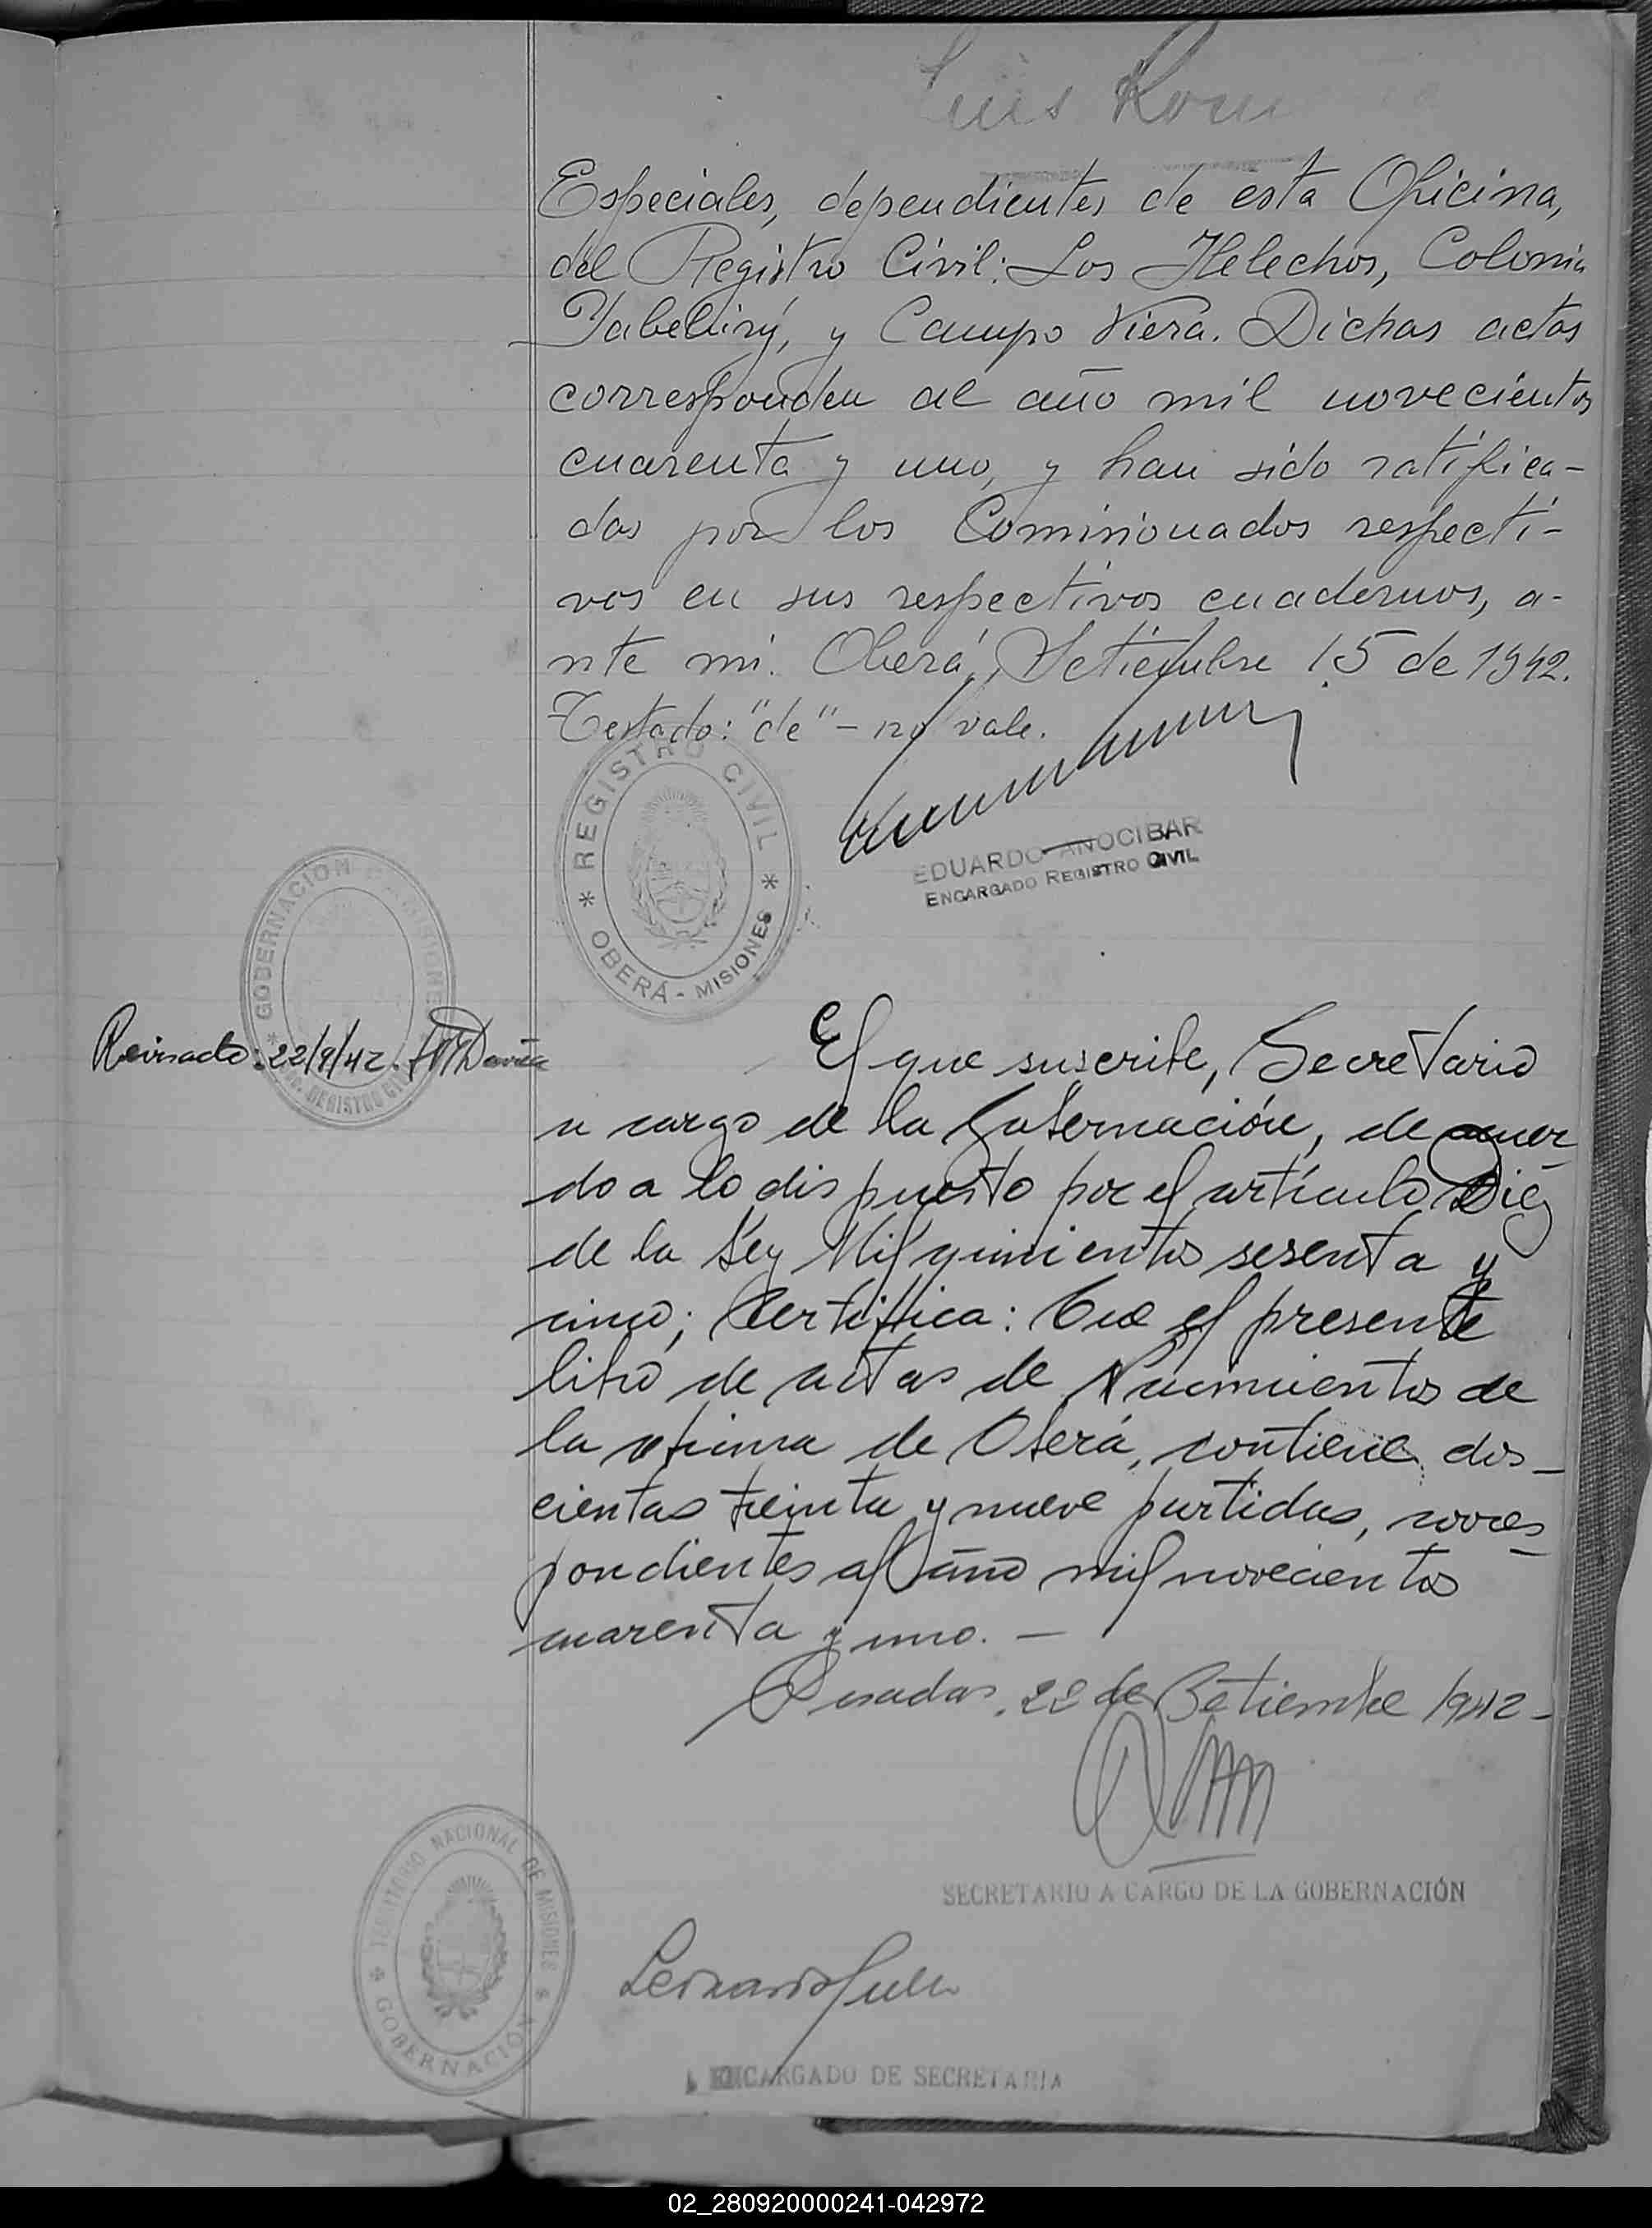 Luis
Especiales, dependientes de esta Oficina,
del Registro Civil: Los Helechos, Colonia
Yabebirý, y Campo Viera. Dichas actas
corresponden al año mil novecientos
cuarenta y uno, y han sido ratifica-
das por los Comisionados respecti-
vos en sus respectivos cuadernos, a-
nte mí. Oberá, Setiembre 15 de 1942.
Testado: "de" - no vale.
REGISTRO CIVIL
OBERÁ - MISIONES
EDUARDO ANOCIBAR
ENCARGADO REGISTRO CIVIL
GOBERNACION DE MISIONES
REGISTRO CIVIL
Revisado: 22/9/42.
El que suscribe, Secretario
a cargo de la Gobernación, de acuer
do a lo dispuesto por el artículo Diez
de la Ley Mil quinientos sesenta y
cinco; Certifica: Que el presente
libro de actas de Nacimientos de
la oficina de Oberá, contiene dos_
cientas treinta y nueve partidas, corres_
pondientes al año mil novecientos
cuarenta y uno. —
Posadas, 22 de Setiembre 1942-
SECRETARIO A CARGO DE LA GOBERNACIÓN
TERRITORIO NACIONAL DE MISIONES
GOBERNACIÓN
ENCARGADO DE SECRETARIA
02_280920000241-042972